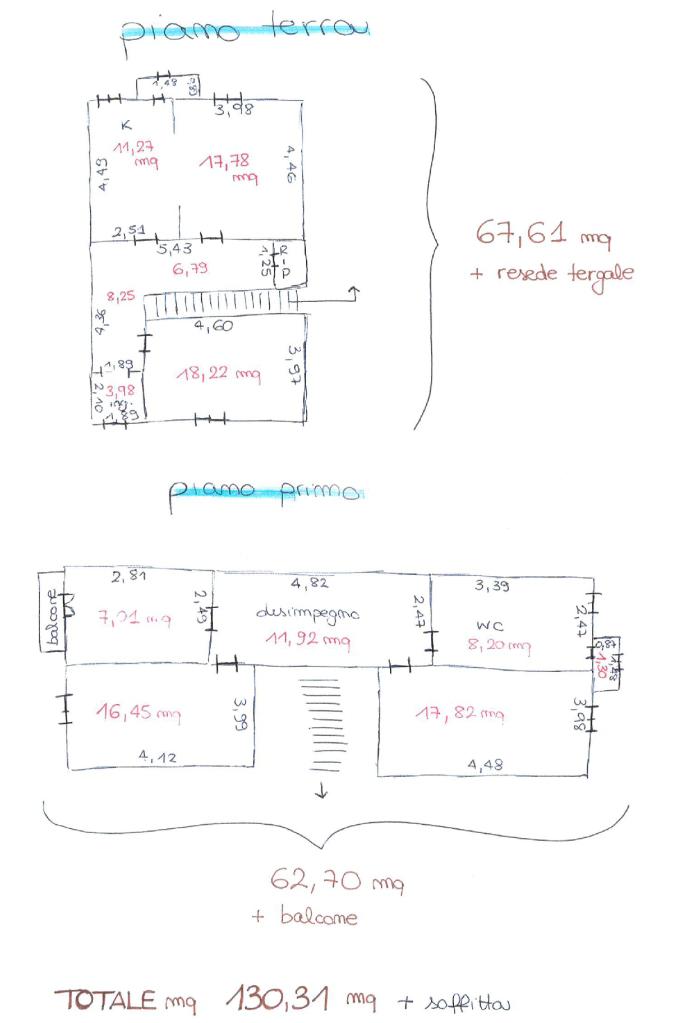 piano terra
1,48
3,98
K
11,27
mq
17,78
mq
4,49
4,46
2,51
5,43
6,79
1,25
R
P
8,25
4,36
4,60
1,89
3,98
2,10
18,22 mq
3,97
1,89
67,61 mq
+ resede tergale
piano primo
balcone
2,81
7,01 mq
2,49
4,82
disimpegno
11,92 mq
2,47
3,39
WC
8,20 mq
2,47
0,87
1,30
1,48
16,45 mq
3,99
4,12
17,82 mq
3,98
4,48
62,70 mq
+ balcone
TOTALE mq 130,31 mq + soffitta